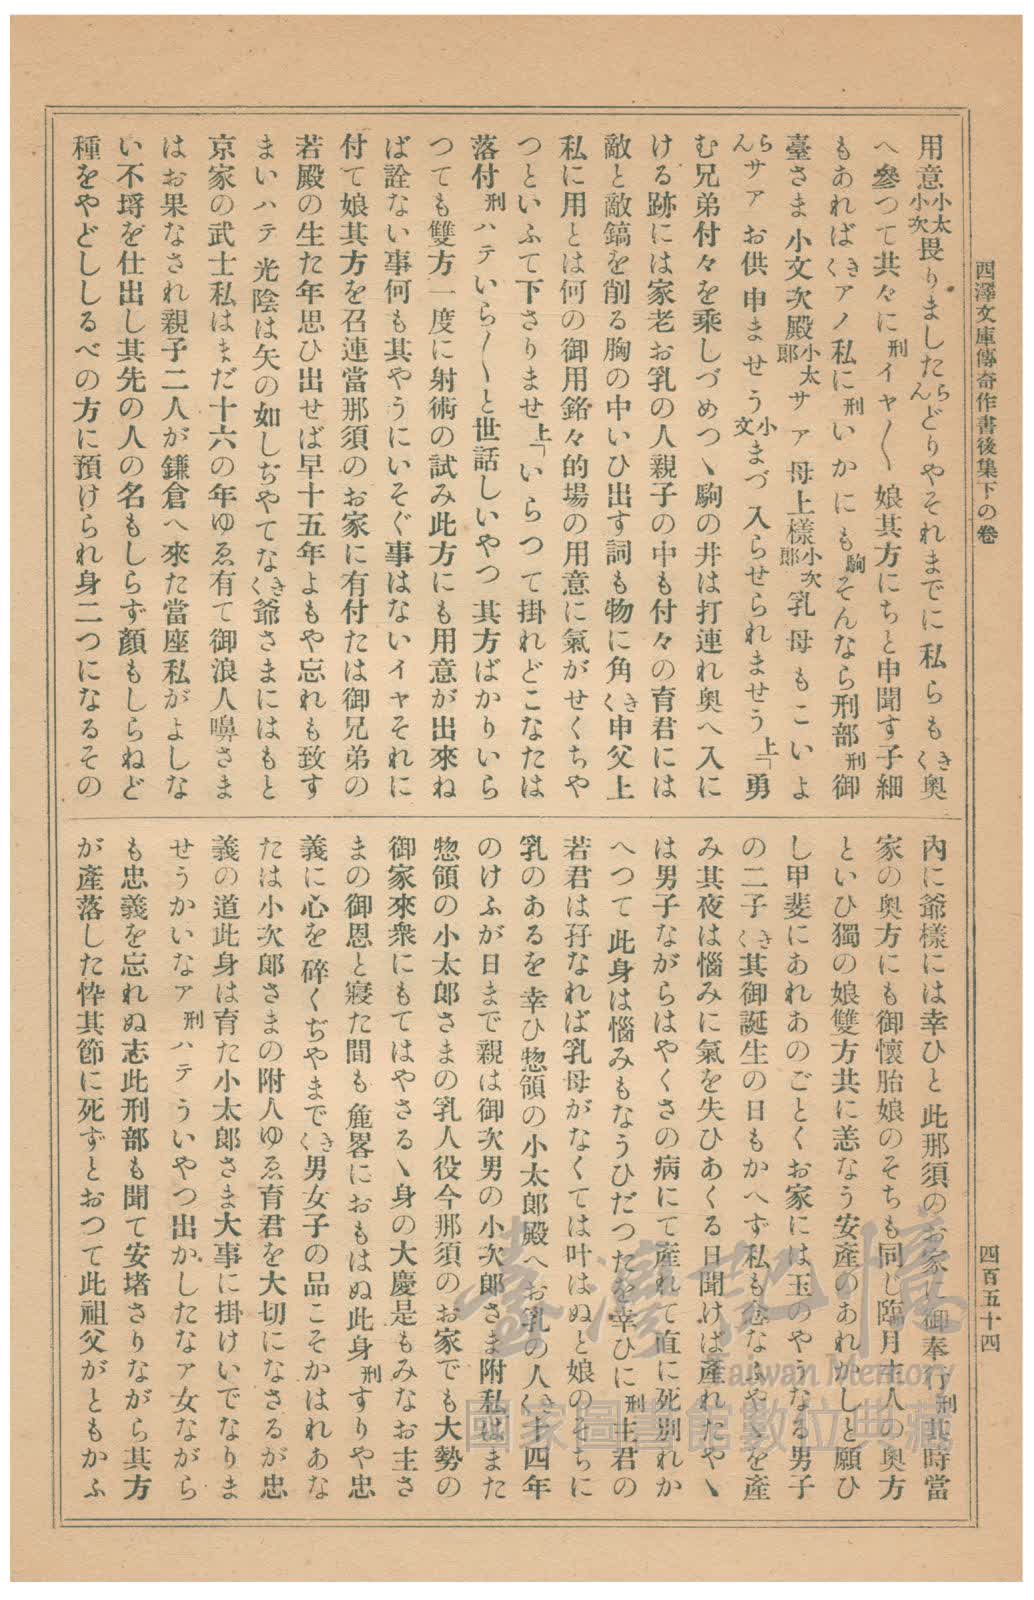 西澤文庫傳奇作書後集下の卷
四百五十四
用意小太小次畏りましたらんどりやそれまでに私らもきく奥
へ參つて共々に刑イヤ〱娘其方にちと申聞す子細
もあればきくアノ私に刑いかにも駒そんなら刑部刑御
臺さま小文次殿小太郎サア母上樣小次郎乳母もこいよ
らんサアお供申ませう小文まづ入らせられませう上「勇
む兄弟付々を乘しづめつゝ駒の井は打連れ奥へ入に
ける跡には家老お乳の人親子の中も付々の育君には
敵と敵鎬を削る胸の中いひ出す詞も物に角きく申父上
私に用とは何の御用銘々的場の用意に氣がせくちや
つといふて下さりませ上「いらつて掛れどこなたは
落付刑ハテいら〱と世話しいやつ其方ばかりいら
つても雙方一度に射術の試み此方にも用意が出來ね
ば詮ない事何も其やうにいそぐ事はないイヤそれに
付て娘其方を召連當那須のお家に有付たは御兄弟の
若殿の生た年思ひ出せば早十五年よもや忘れも致す
まいハテ光陰は矢の如しぢやてなきく爺さまにはもと
京家の武士私はまだ十六の年ゆゑ有て御浪人嚊さま
はお果なされ親子二人が鎌倉へ來た當座私がよしな
い不埒を仕出し其先の人の名もしらず顏もしらねど
種をやどししるべの方に預けられ身二つになるその
内に爺樣には幸ひと此那須のお家に御奉行刑其時當
家の奥方にも御懷胎娘のそちも同じ臨月主人の奥方
といひ獨の娘雙方共に恙なう安產のあれかしと願ひ
し甲斐にあれあのごとくお家には玉のやうなる男子
の二子きく其御誕生の日もかへず私も念なふやゝを產
み其夜は惱みに氣を失ひあくる日聞けば產れたやゝ
は男子ながらはやくさの病にて產れて直に死別れか
へつて此身は惱みもなうひだつたを幸ひに刑主君の
若君は孖なれば乳母がなくては叶はぬと娘のそちに
乳のあるを幸ひ惣領の小太郎殿へお乳の人きく十四年
のけふが日まで親は御次男の小次郎さま附私はまた
惣領の小太郎さまの乳人役今那須のお家でも大勢の
御家來衆にもてはやさるゝ身の大慶是もみなお主さ
まの御恩と寢た間も麁畧におもはぬ此身刑すりや忠
義に心を碎くぢやまできく男女子の品こそかはれあな
たは小次郎さまの附人ゆゑ育君を大切になさるが忠
義の道此身は育た小太郎さま大事に掛けいでなりま
せうかいなア刑ハテういやつ出かしたなア女ながら
も忠義を忘れぬ志此刑部も聞て安堵さりながら其方
が產落した忰其節に死ずとおつて此祖父がともかふ
臺灣記憶
Taiwan Memory
國家圖書館數位典藏